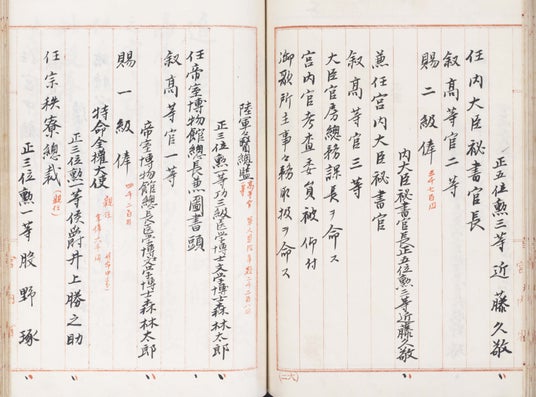 正五位勲三等近藤久敬
任内大臣祕書官長
叙高等官二等
賜二級俸
内大臣祕書官長正五位勲三等近藤久敬
兼任宮内大臣祕書官
叙高等官三等
大臣官房總務課長ヲ命ス
宮内官考査委員被仰付
御歌所主事事務取扱ヲ命ス
陸軍軍醫總監
正三位勲一等功三級医学博士文学博士森林太郎
任帝室博物館總長兼圖書頭
叙高等官一等
帝室博物館總長医学博士文学博士森林太郎
賜一級俸
特命全權大使
正三位勲一等侯爵井上勝之助
任宗秩寮總裁
(親任)
正三位勲一等股野琢